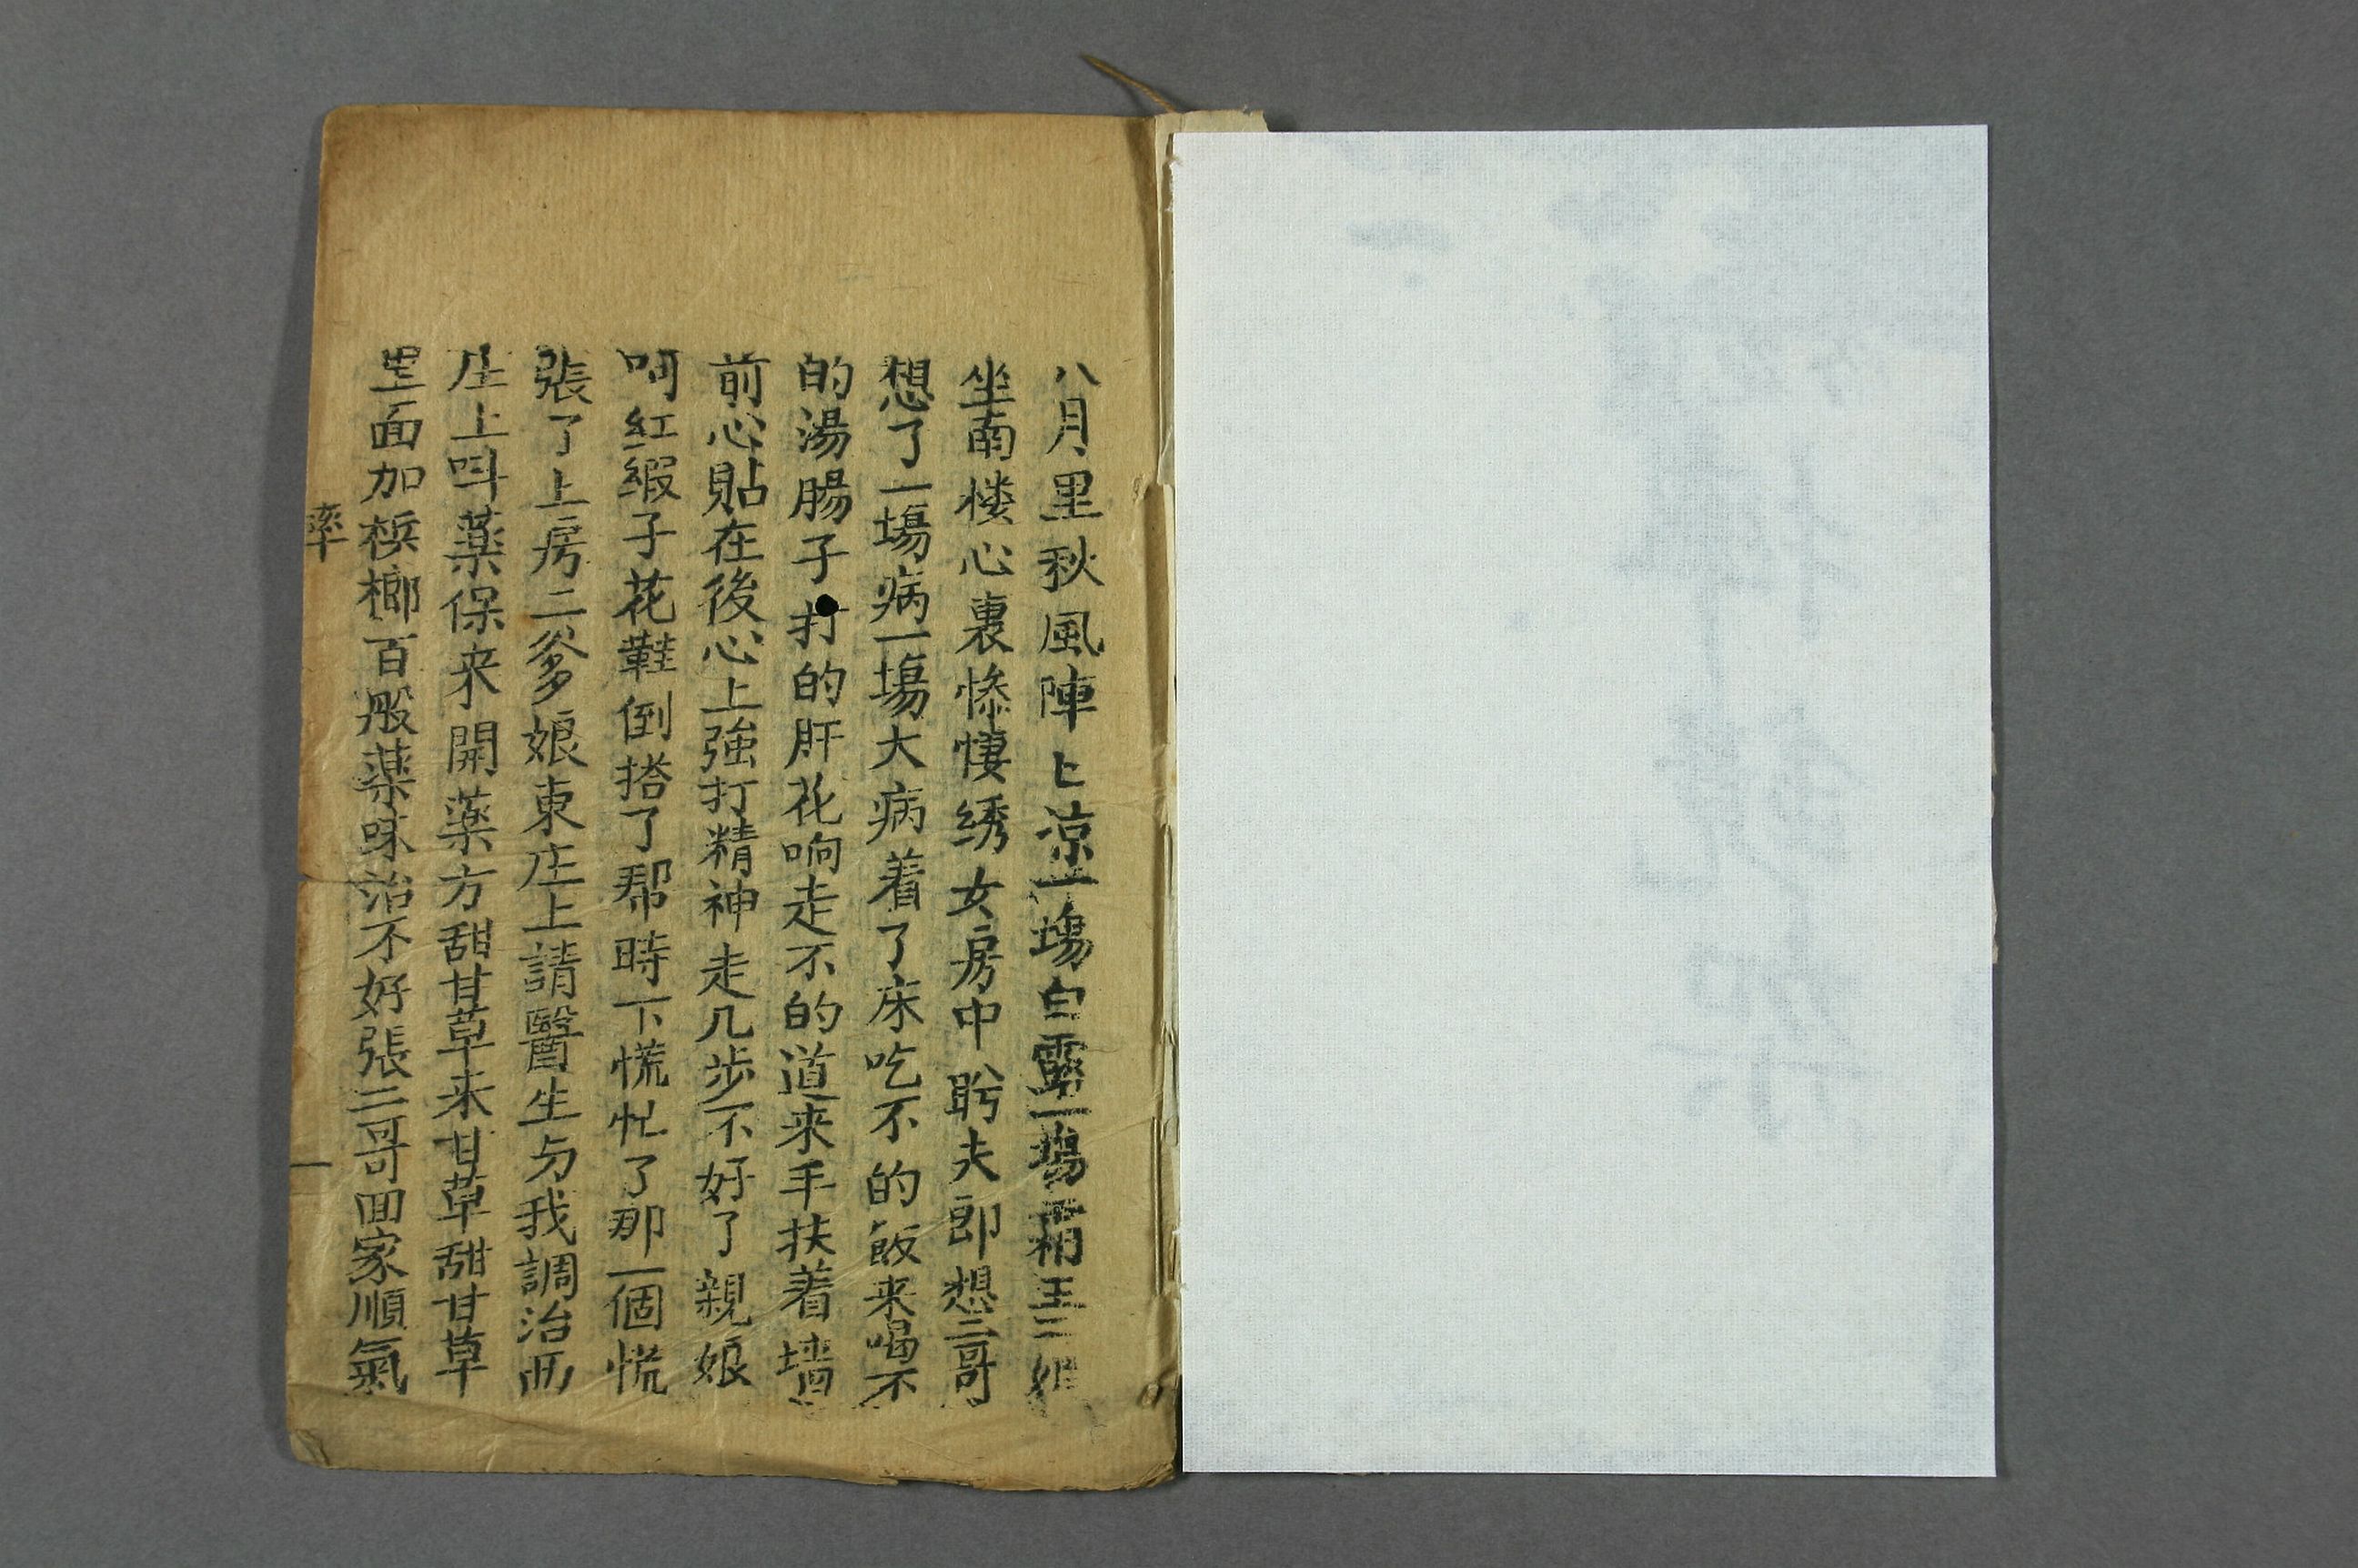 八月里秋風陣上涼一塲白露一塲霜王二姐
坐南楼心裏惨悽绣女房中盻夫郎想二哥
想了一塲病一塲大病着了床吃不的飯来喝不
的湯腸子打的肝花响走不的道来手扶着墻
前心貼在後心上強打精神走几步不好了親娘
呵紅緞子花鞋倒搭了帮時下慌忙了那一個慌
張了上房二爹娘東庄上請醫生与我調治西
庄上呌薬保来開薬方甜甘草来甘草甜甘草
里面加梹榔百般薬味治不好張二哥回家順氣
率
一